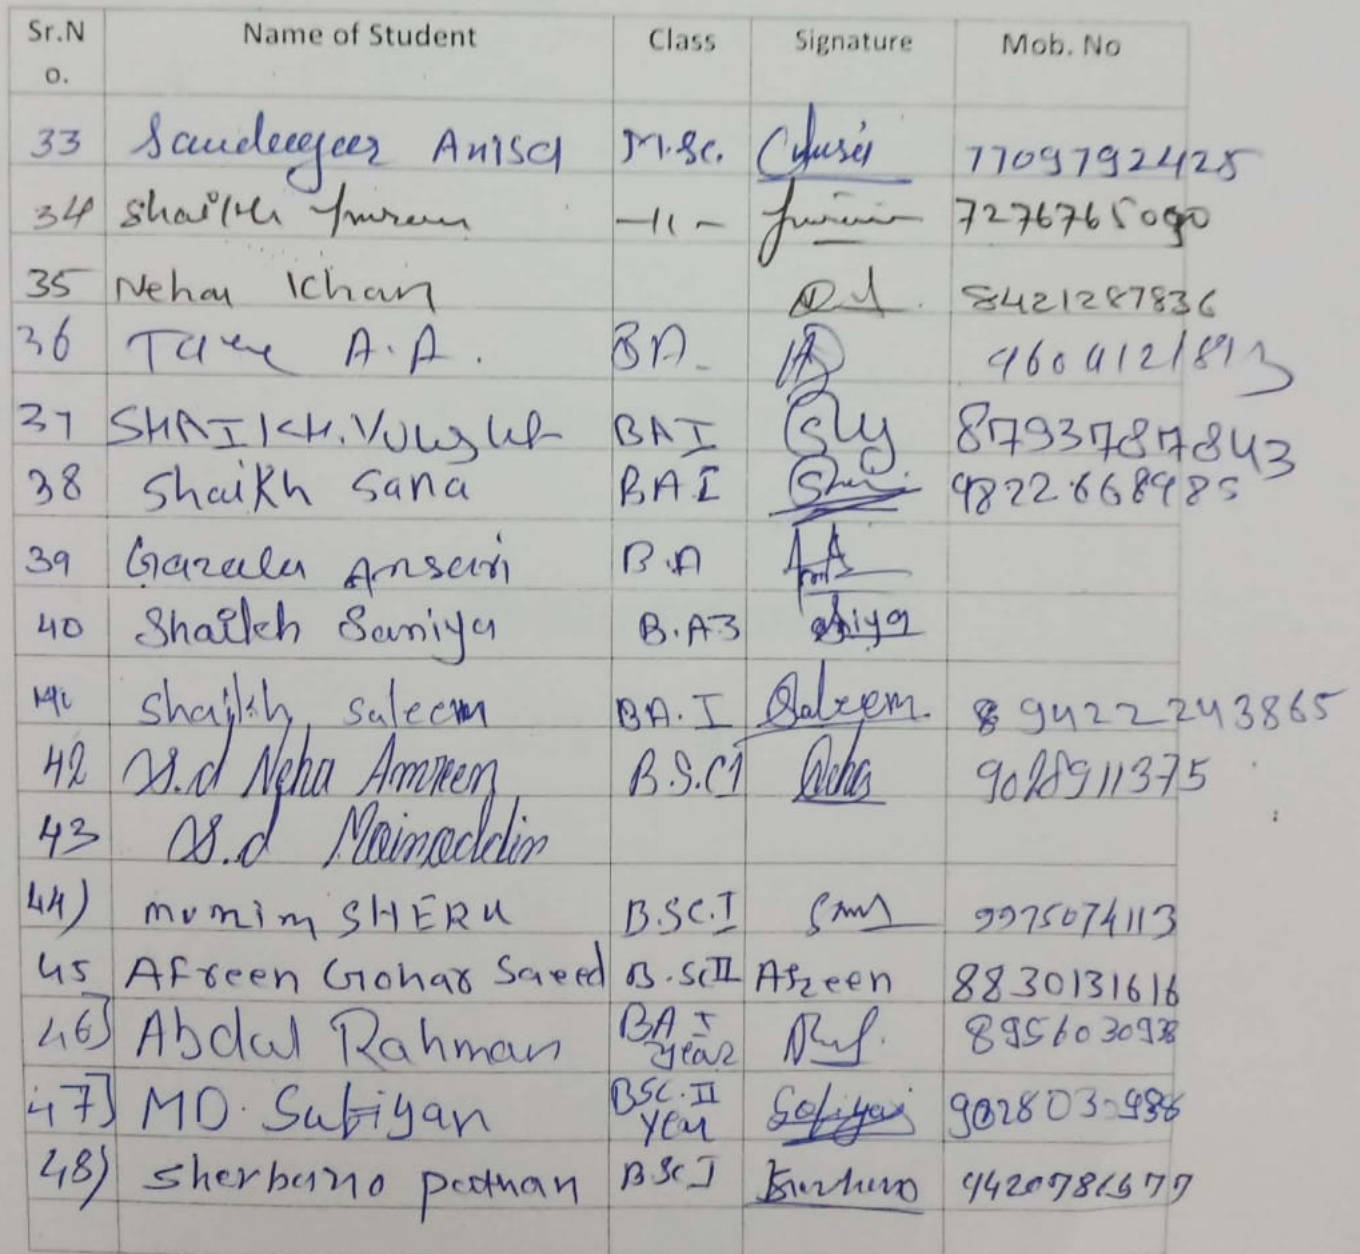 Sr.N Name of Student Class Signature Mob. No
o.
33 Anisa M.Sc. 7709792425
34 Shaikh Imran -11- 7276765090
35 Neha Khan 8421287836
36 A.A. BA
37 SHAIKH. BAI 8793787843
38 Shaikh Sana BAI
39 Gazala Ansari B.A
40 Shaikh Saniya B.A3
41 Shaikh Saleem BA.I Saleem 9422243865
42 S.d Neha Amreen B.S.C1 Neha 9028911375
43 S.d Moinoddin
44) mumim SHERU B.SC.I 9975074113
45 Afreen Gohar Saeed B.SCII Afreen 8830131616
46] Abdal Rahman BA I
year
47] MD. Sufiyan BSC.II
year
48) Sherbano pathan BSc I